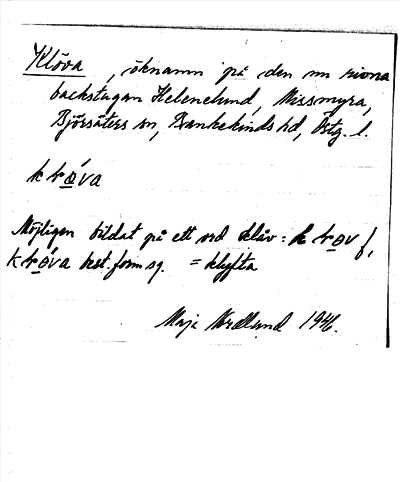 Klöva, öknamn på den nu rivna
backstugan Helenelund, Missmyra,
Björsäters sn, Bankekinds hd, Östg. l.
kłǫ́va
Möjligen bildat på ett ord klåv: kłǫv f,
kłǫ́va best. form sg. = klyfta
Maja Nordlund 1946.